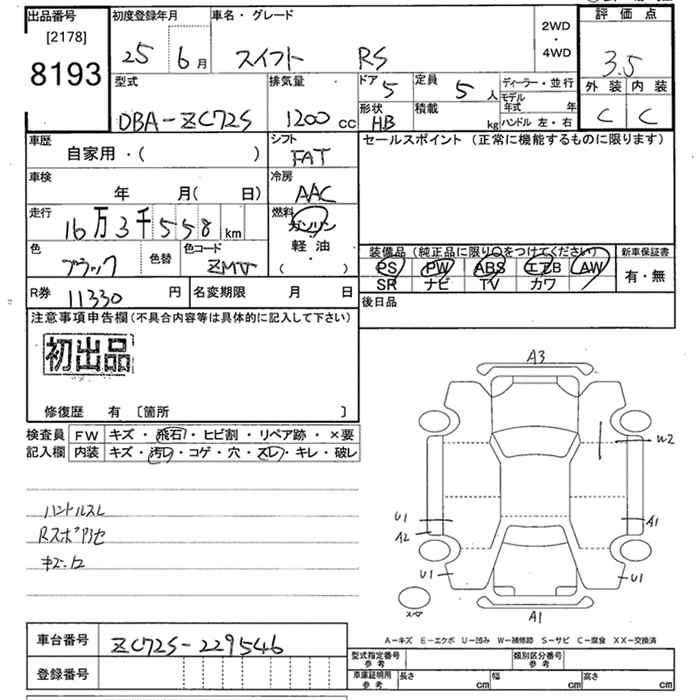 出品番号
[2178]
8193
初度登録年月
25 6 月
車名・グレード
スイフト RS
2WD
・
4WD
評価点
3.5
外装 内装
C C
型式
DBA-ZC72S
排気量
1200 cc
ドア 5
形状
HB
定員 5 人
積載 kg
ディーラー・並行
モデル
年式 年
ハンドル 左・右
車歴
自家用・( )
シフト
FAT
車検
年 月( 日)
冷房
AAC
走行
16万3千558 km
燃料
ガソリン
軽油
( )
色
ブラック
色替
色コード
ZMV
R券 11330 円
名変期限 月 日
セールスポイント (正常に機能するものに限ります)
装備品(純正品に限り○をつけてください)
PS PW ABS エアB AW
SR ナビ TV カワ
新車保証書
有・無
後日品
注意事項申告欄(不具合内容等は具体的に記入して下さい)
初出品
修復歴 有 〔箇所 〕
検査員
記入欄
FW キズ・飛石・ヒビ割・リペア跡・×要
内装 キズ・汚レ・コゲ・穴・スレ・キレ・破レ
ハンドルスレ
キズ・凹
A3
W2
U1
A2
A1
U1
U1
A1
A-キズ E-エクボ U-凹み W-補修跡 S-サビ C-腐食 XX-交換済
車台番号 ZC72S-229546
登録番号
型式指定番号
参考
類別区分番号
参考
車庫証明用
参考
長さ cm 幅 cm 高さ cm